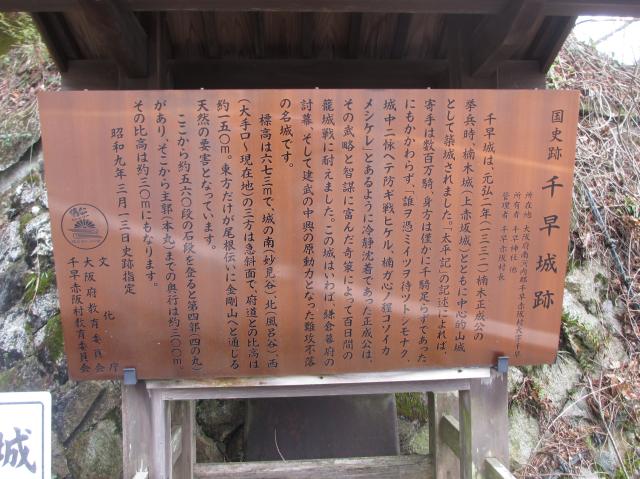 国史跡 千早城跡
所在地 大阪府南河内郡千早赤阪村大字千早
所有者 千早神社 他
管理者 千早赤阪村長
千早城は、元弘二年(一三三二)楠木正成公の
挙兵時、楠木城(上赤坂城)とともに中心的山城
として築城されました。「太平記」の記述によれば、
寄手は数百万騎、身方は僅かに千騎足らずであった
にもかかわらず、「誰ヲ憑ミイツヲ待ツトシモナク、
城中ニ怺ヘテ防ギ戦ヒケル、楠ガ心ノ程コソイカ
メシケレ」とあるように冷静沈着であった正成公は、
その武略と智謀に富んだ奇策によって百日間の
籠城戦に耐えました。この城はいわば、鎌倉幕府の
討幕、そして建武の中興の原動力となった難攻不落
の名城です。
標高は六七三mで、城の南(妙見谷)、北(風呂谷)、西
(大手口〜現在地)の三方は急斜面で、府道との比高は
約一五〇m。東方だけが尾根伝いに金剛山へと通じる
天然の要害となっています。
ここから約五六〇段の石段を登ると第四郭(四の丸)
があり、そこから主郭(本丸)までの奥行は約三〇〇m、
その比高は約三〇mにもなります。
昭和九年三月一三日史跡指定
文化庁
大阪府教育委員会
千早赤阪村教育委員会
城